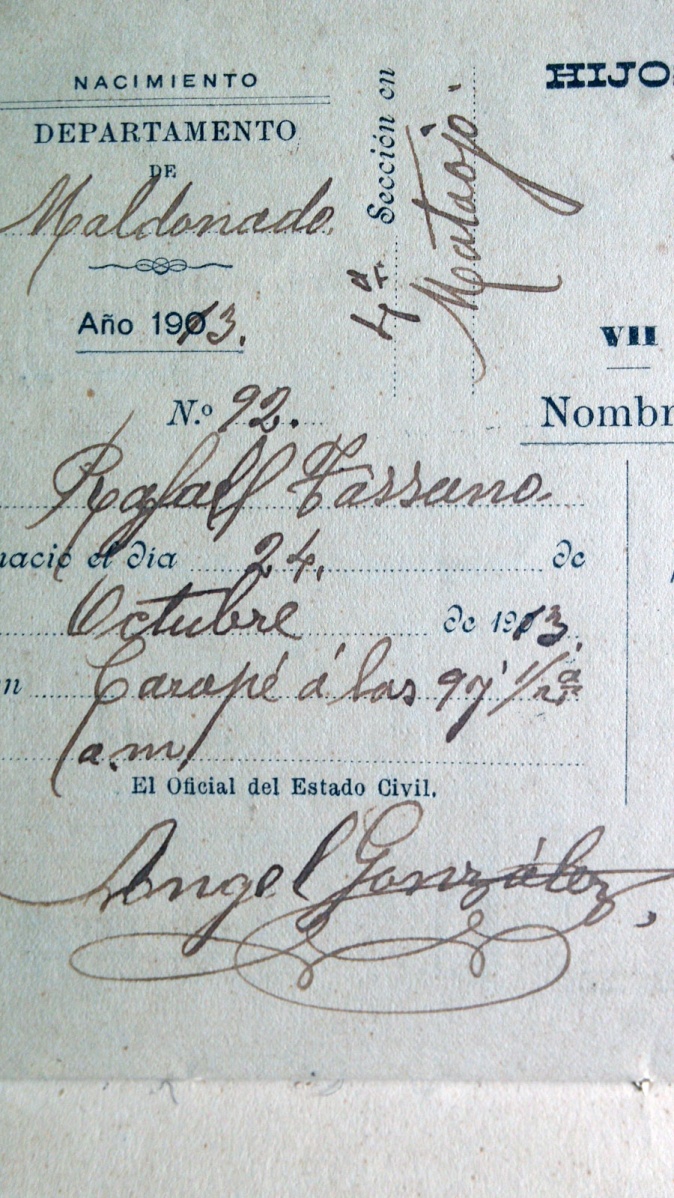 NACIMIENTO
DEPARTAMENTO
DE
Maldonado
Año 1913.
4ª Sección en
Mataojo.
N.º 92.
Rafael Tassano
nació el día 24. de
Octubre de 1913.
Carapé á las 9 y 1/2
a.m.
El Oficial del Estado Civil,
Angel González,
HIJOS
VII
Nombr